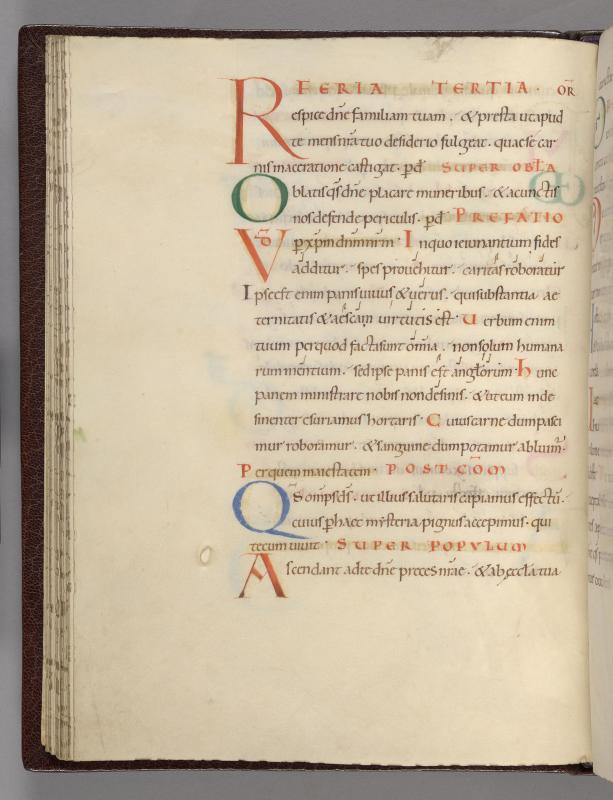 FERIA TERTIA · OR̄
Respice dn̄e familiam tuam . & presta ut apud
te mens nr̄a tuo desiderio fulgeat . quae se car
nis maceratione castigat . p̄ d̄ SUPER OBL̄A
Oblatis q̄s dn̄e placare muneribus . & a cunctis
nos defende periculis . p̄ d̄ PREFATIO
VD̄ p̄ xp̄m dnm̄ nr̄m · In quo ieiunantium fides
additur . spes prouehitur . caritas roboratur
Ipse est enim panis uiuus & uerus . qui substantia ae
ternitatis & aesca uirtutis est · Uerbum enim
tuum per quod facta sunt omīa . non solum humana
rum mentium . sed ipse panis est anglorum · Hunc
panem ministrare nobis non desinis . & ut eum inde
sinenter esuriamus hortaris · Cuius carne dum pasci
mur roboramur . & sanguine dum potamur abluim̄
Per quem maiestatem · POST COM̄
Qs omp̄s d̄s . ut illius salutaris capiamus effectū .
cuius p̄ haec mysteria pignus accepimus · qui
tecum uiuit · SUPER POPVLUM
Ascendant ad te dn̄e preces nr̄ae . & ab eccl̄a tua